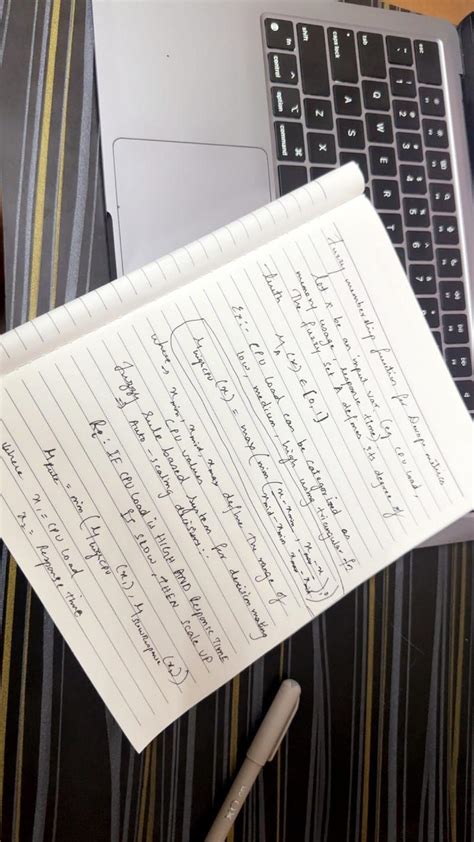 Fuzzy membership function for Devops metrics
Let x be an input var. (eg CPU load,
memory usage, response time)
The fuzzy set A defines its degree of
truth
M_A (x) ∈ [0,1]
Ex:- CPU load can be categorized as
low, medium, high using triangular fn
M_highCPU (x) = max(min(x-x_min / x_mid-x_min, x_max-x / x_max-x_mid), 0)
where x_min, x_mid, x_max define the range of
CPU values
Fuzzy Rule based system for decision making
⇒ Auto-scaling decisions:-
R: IF CPU Load is HIGH AND Response TIME
IS SLOW, THEN Scale UP
= min (M_highCPU (x₁), (x₂))
where x₁ = CPU Load
x₂ = Response time
esc
tab
caps lock
shift
fn
control
option
command
Q
W
A
S
Z
X